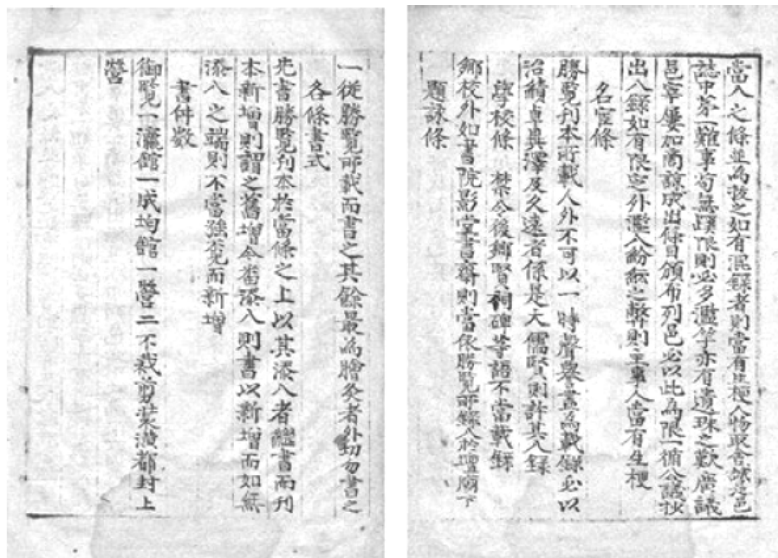 當入之條並為拔之如有濫錄者則當有生梗人物取舍錄是邑
誌中第一難事苟無蹊限則必多濫竽亦有遺珠之歎廣議
邑宰屢加商諒成出條目頒布列邑必以此為限一循公議抄
出入錄如有限定外濫入紛紜之弊則主事人當有生梗
名宦條
勝覽刊本所載人外不可以一時聲譽輩為載錄必以
治績卓異澤及久遠者係是大儒賢則許其入錄
學校條 禁令後鄉賢祠碑等語不當載錄
鄉校外如書院影堂書齋則當依勝覽所錄入於聖廟下
題詠條
一從勝覽所載而書之其餘最為膾炙者外切勿書之
各條書式
先書勝覽刊本於當條之上以其添入者繼書而刊
本新增則謂之舊增今番添入則書以新增而如無
添入之端則不當強覓而新增
書件數
御覽一瀛館一成均館一營二不裁剪裝潢都封上
營